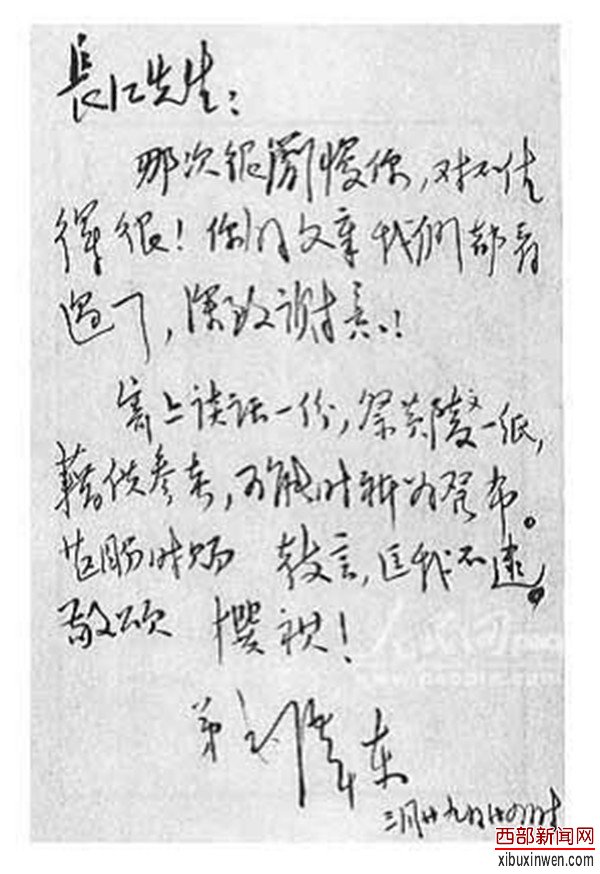 長江先生：
那次很簡慢你，对不住
得很！你的文章我們都看
過了，深致謝意！
寄上談話一份，祭黃陵文一紙，
藉供參考，可能时祈为發布。
甚盼时賜 教言，匡我不逮。
敬頌 撰祺！
弟毛澤東
三月廿九日廿四时
人民网
西部新闻网
xibuxinwen.com